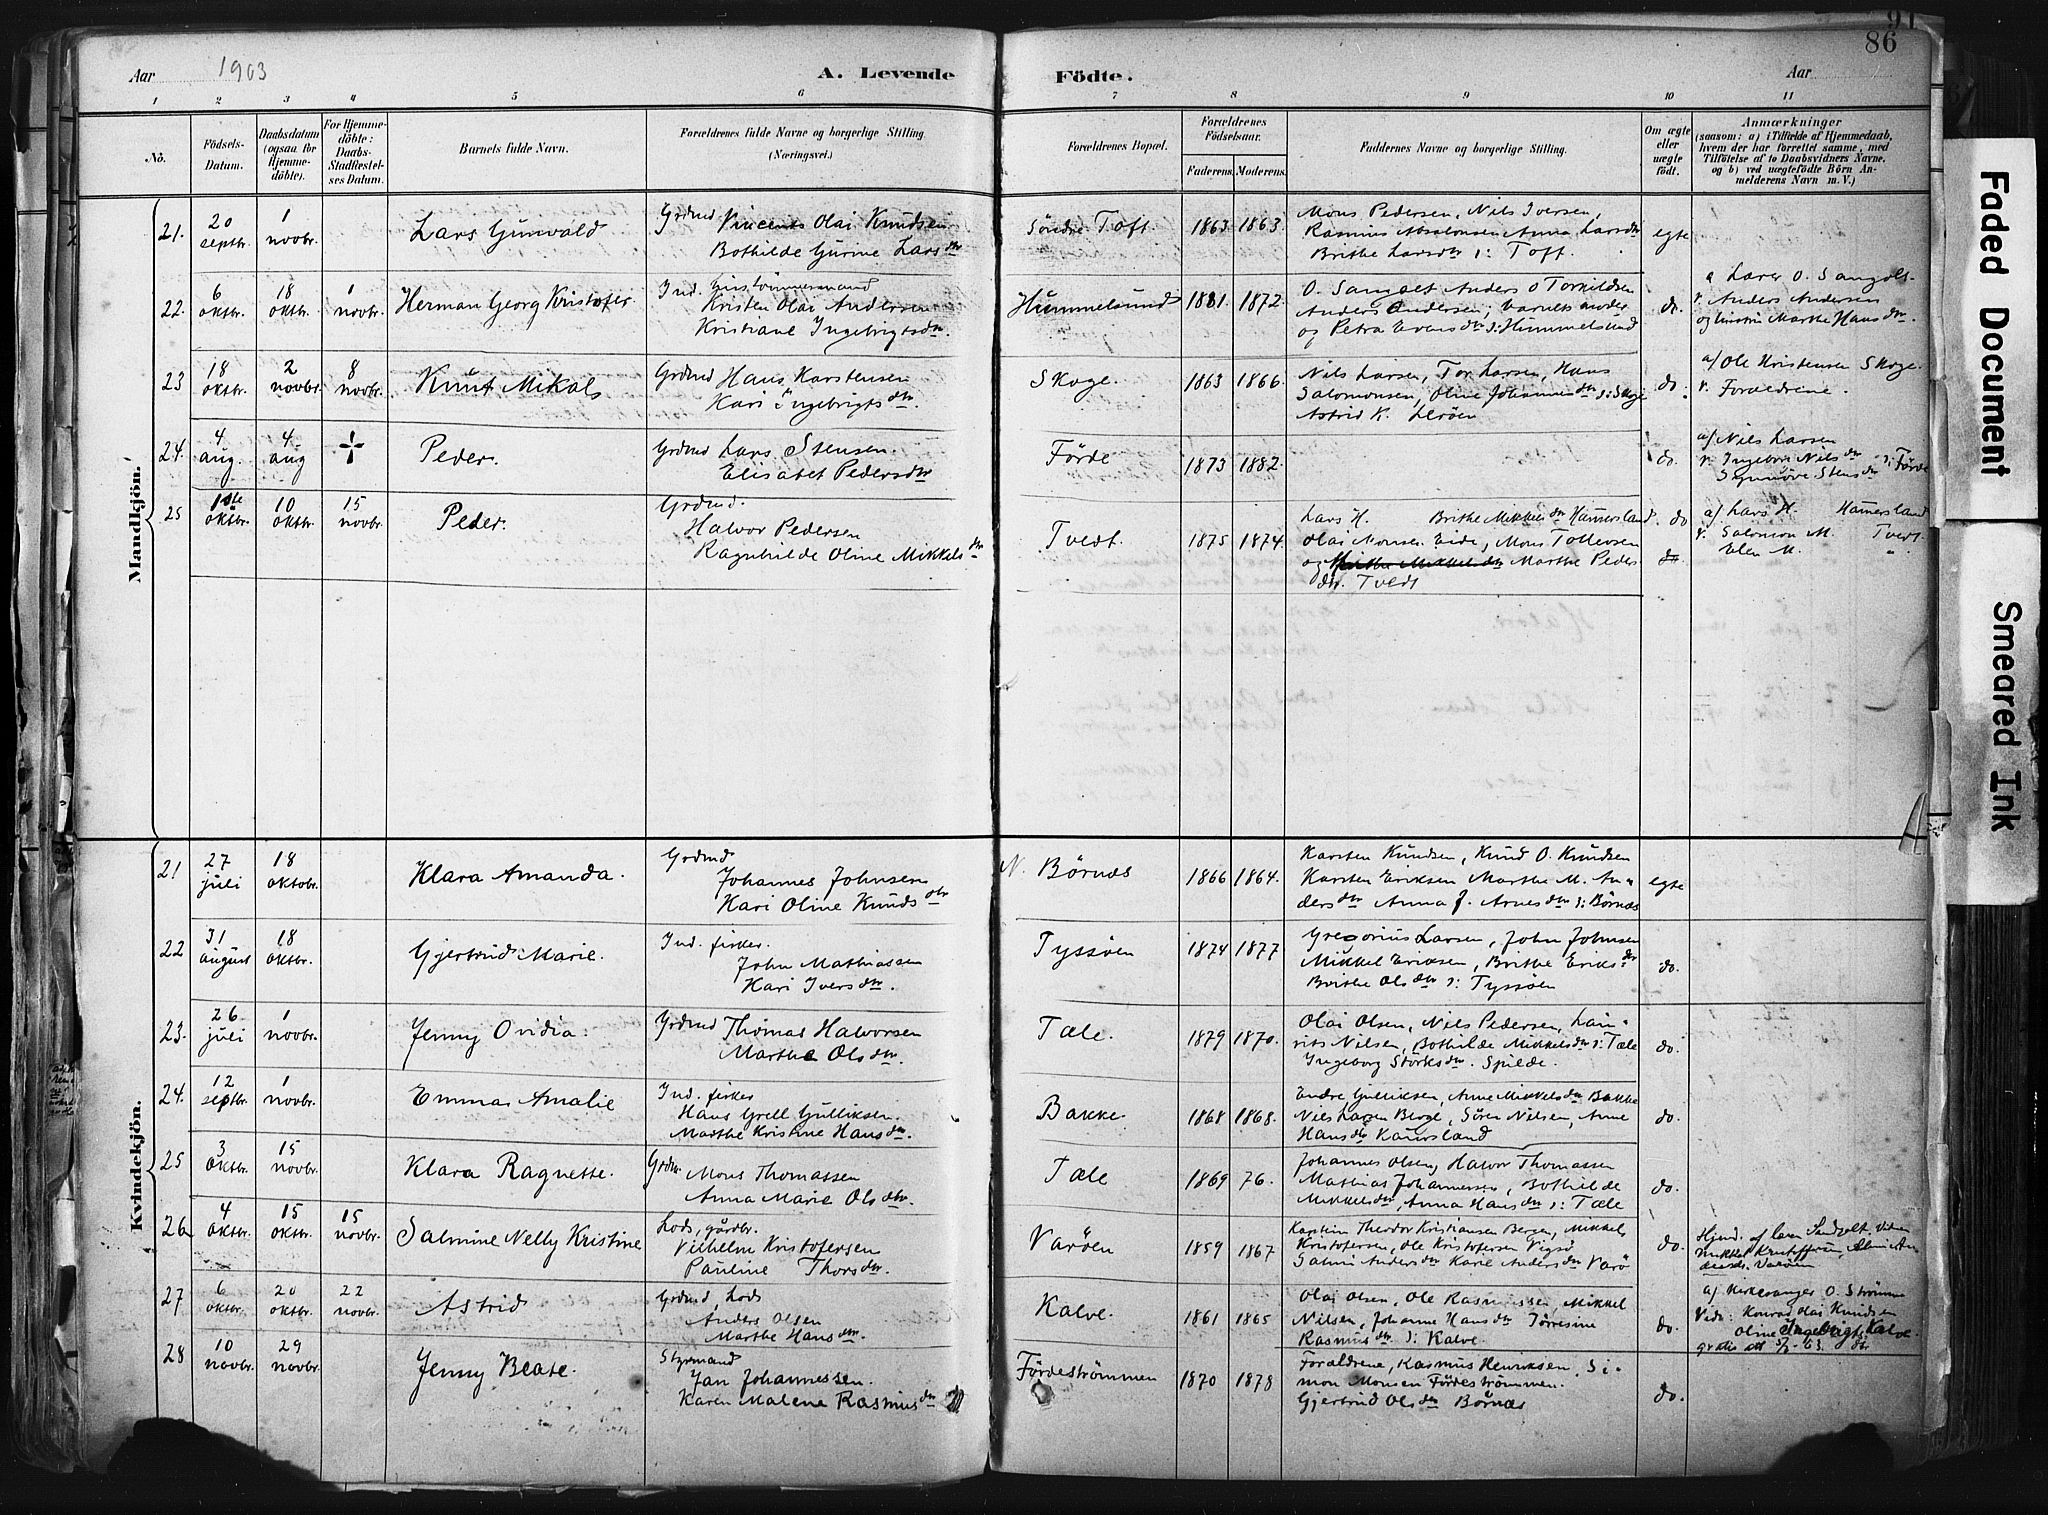 91
86
Aar 1903
A. Levende Födte.
Aar
1 2 3 4 5 6 7 8 9 10 11
No.
Födsels-
Datum.
Daabsdatum
(ogsaa for
Hjemme-
döbte).
For Hjemme-
döbte:
Daabs-
Stadfæstel-
ses Datum.
Barnets fulde Navn.
Forældrenes fulde Navne og borgerlige Stilling.
(Næringsvei.)
Forældrenes Bopæl.
Forældrenes
Födselsaar.
Faderens. Moderens.
Faddernes Navne og borgerlige Stilling.
Om ægte
eller
uægte
födt.
Anmærkninger
(saasom: a) i Tilfælde af Hjemmedaab,
hvem der har forrettet samme, med
Tilföielse af to Daabsvidners Navne,
og b) ved uægtefödte Börn An-
melderens Navn m. V.)
Mandkjön.
21. 20 septbr. 1 novbr. Lars Gunvald
Grdmd Vincents Olai Knudsen
Bothilde Gurine Larsdtr
Söndre Toft. 1863 1863.
Mons Pedersen, Nils Iversen,
Rasmus Absalonsen Anna Larsdtr
Brithe Larsdtr s: Toft.
egte
22. 6 oktbr. 18 oktbr. 1 novbr. Herman Georg Kristofer.
Ind. hustömmermand
Kristen Olai Andersen
Kristiane Ingebrigtsdtr.
Hummelsund 1881 1872.
O. Sangolt Anders O Torkildsen
Anders Andersen, barnets moder
og Petra Evensdtr s: Hummelsund
do.
a Lærer O. Sangolt-
v. Anders Andersen
og hustru Marthe Hansdtr.
23 18 oktbr. 2 novbr. 8 novbr. Knut Mikal
Grdmd Hans Karstensen
Kari Ingebrigtsdtr.
Skoge. 1863 1866.
Nils Larsen, Tor Larsen, Hans
Salomonsen, Oline Johannesdtr s: Skoge
Astrid K. Leröen
do.
a/ Ole Kristensen Skoge.
v. Forældrene.
24. 4 aug. 4 aug Peder.
Grdmd Lars Stensen.
Elisabet Pedersdtr
Förde 1873 1882.
do.
a/ Nils Larsen
v. Ingeborg Nilsdtr s: Förde
Synnöve Stensdtr
25 1ste oktbr. 10 oktbr. 15 novbr. Peder.
Grdmd.
Halvor Pedersen
Ragnhilde Oline Mikkelsdtr
Tvedt. 1875 1874.
Lars H. Brithe Mikkelsdtr Hamersland.
Olai Monsen Eide, Mons Tollevsen
og Marthe Mikkelsdtr Marthe Peders
dtr. Tvedt
do
do
a/ Lars H. Hamersland
v. Salomon M. Tvedt.
Elen M. "
Kvindekjön.
21 27 juli 18 oktobr. Klara Amanda.
Grdmd
Johannes Johnsen
Kari Oline Knudsdtr
N. Börnes 1866 1864.
Karsten Knudsen, Knud O. Knudsen
Karsten Eriksen Marthe M. An-
dersdtr Anna J. Arnesdtr s: Börnæs
egte
22 31 august 18 oktbr. Gjertrud Marie.
Ind. fisker.
John Mathiassen
Kari Iversdtr.
Tyssöen 1874 1877
Gregorius Larsen, John Johnsen
Mikkel Eriksen, Brithe Eriksdtr
Brithe Olsdtr s: Tyssöen
do.
23. 26 juli 1 novbr. Jenny Ovidia.
Grdmd Thomas Halvorsen
Marthe Olsdtr.
Tæle. 1879 1870.
Olai Olsen, Nils Pedersen, Lau-
rits Nilsen, Bothilde Mikkelsdtr s: Tæle
Ingeborg Störksdtr. Spilde.
do.
24. 12 septbr. 1 novbr. Emma Amalie
Ind. fisker
Hans Grell Gulliksen.
Marthe Kristine Hansdtr.
Bakke. 1868 1868.
Endre Gulliksen, Anne Mikkelsdtr Bakke
Nils Larsen Berge, Sören Nilsen, Anne
Hansdtr Kaursland
do.
25 3 oktbr. 15 novbr. Klara Ragnette.
Grdm. Mons Thomassen
Anna Marie Olsdtr.
Tæle 1869 76.
Johannes Olsen, Halvor Thomassen
Mathias Johannessen, Bothilde
Mikkelsdtr, Anna Hansdtr s: Tæle
do.
26 4 oktbr. 15 oktbr. 15 novbr. Salmine Nelly Kristine
Lods, gårdbr.
Vilhelm Kristofersen
Pauline Thorsdtr.
Varöen 1859 1867
Karstein Theodor Kristiansen Bergen, Mikkel
Kristofersen, Ole Kristofersen Vigsö
Salmi Andersdtr Karie Andersdtr Varö
do.
Hjmd. af lærer Sandgolt. Vidner
Mikkel Kristoffersen, Almie An-
dersdr. Varöen
27 6 oktbr. 20 oktbr. 22 novbr. Astrid
Grdmd, Lods
Anders Olsen
Marthe Hansdtr
Kalve. 1861 1865
Olai Olsen, Ole Rasmussen, Mikkel
Nilsen, Johanne Hansdtr Torresine
Rasmusdtr s: Kalve.
do.
a/ Kirkesanger O. Strömme
Vidn: Konrad Olai Knudsen
Oline Ingebrigts Kalve
28 10 novbr. 29 novbr Jenny Beate.
Styrmand
Jan Johannessen.
Karen Malene Rasmusdtr
Fördeströmmen 1870 1878
Forældrene, Rasmus Henriksen, Si-
mon Monsen Fördeströmmen.
Gjertrud Olsdtr Börnæs
do.
Faded Document
Smeared Ink